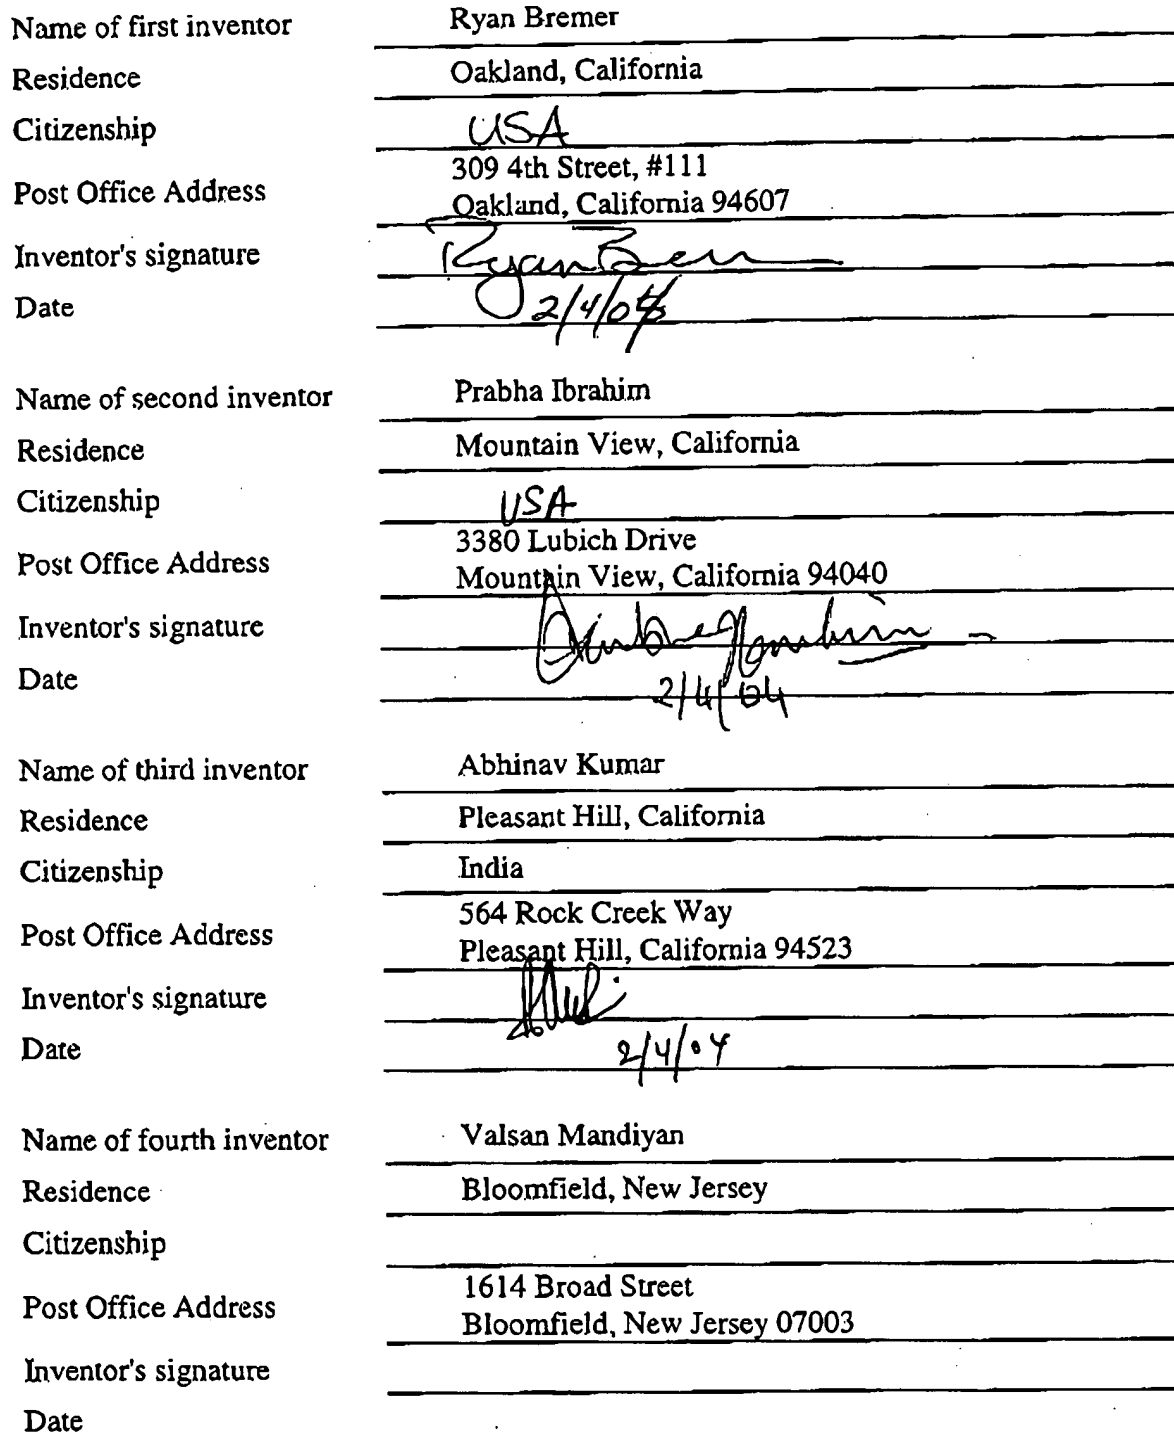 Name of first inventor Ryan Bremer
Residence Oakland, California
Citizenship USA
Post Office Address 309 4th Street, #111
Oakland, California 94607
Inventor's signature
Date 2/4/04
Name of second inventor Prabha Ibrahim
Residence Mountain View, California
Citizenship USA
Post Office Address 3380 Lubich Drive
Mountain View, California 94040
Inventor's signature
Date 2/4/04
Name of third inventor Abhinav Kumar
Residence Pleasant Hill, California
Citizenship India
Post Office Address 564 Rock Creek Way
Pleasant Hill, California 94523
Inventor's signature
Date 2/4/04
Name of fourth inventor Valsan Mandiyan
Residence Bloomfield, New Jersey
Citizenship
Post Office Address 1614 Broad Street
Bloomfield, New Jersey 07003
Inventor's signature
Date